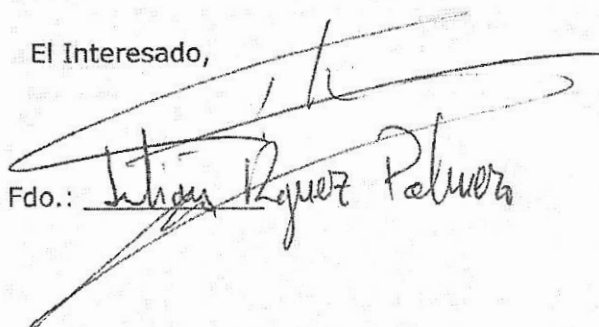 El Interesado,
Fdo.: Julián Rguez Palmero